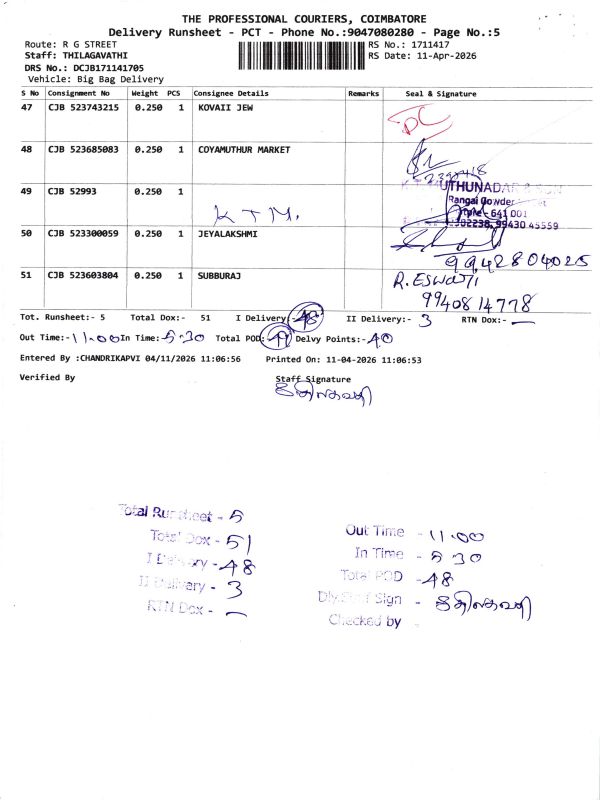 THE PROFESSIONAL COURIERS, COIMBATORE
Delivery Runsheet - PCT - Phone No.:9047080280 - Page No.:5
Route: R G STREET
RS No.: 1711417
Staff: THILAGAVATHI
RS Date: 11-Apr-2026
DRS No.: DCJB171141705
Vehicle: Big Bag Delivery
S No Consignment No Weight PCS Consignee Details Remarks Seal & Signature
47 CJB 523743215 0.250 1 KOVAII JEW DC
48 CJB 523685083 0.250 1 COYAMUTHUR MARKET
49 CJB 52993 0.250 1 K T M.
MUTHUNADAR & SON
Rangai Gowder
641 001
99430 45559
50 CJB 523300059 0.250 1 JEYALAKSHMI
9942804025
51 CJB 523603804 0.250 1 SUBBURAJ R. Eswari
9940814778
Tot. Runsheet:- 5 Total Dox:- 51 I Delivery:- 48 II Delivery:- 3 RTN Dox:- —
Out Time:- 11.00 In Time:- 5.30 Total POD:- Delvy Points:- 40
Entered By :CHANDRIKAPVI 04/11/2026 11:06:56 Printed On: 11-04-2026 11:06:53
Verified By Staff Signature
திலகவதி
Total Runsheet - 5
Total Dox - 51
I Delivery - 48
II Delivery - 3
RTN Dox - —
Out Time - 11.00
In Time - 5.30
Total POD - 48
Dly.Staff Sign - திலகவதி
Checked by -